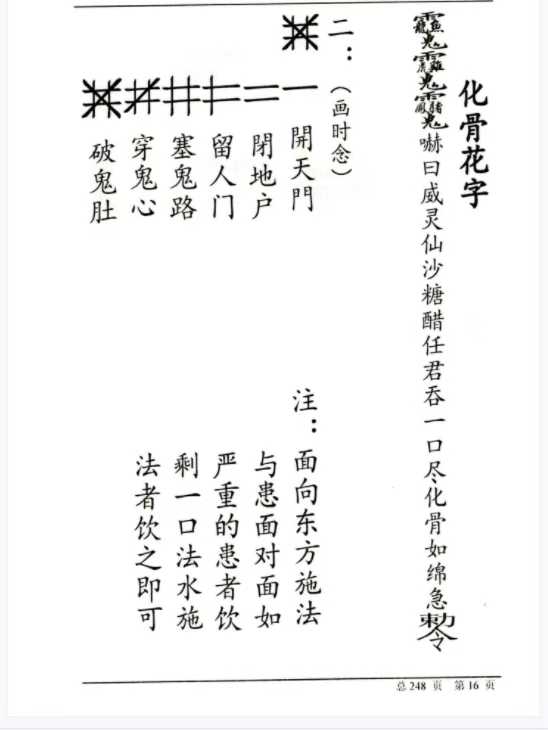 化骨花字
嚇曰威灵仙沙糖醋任君吞一口尽化骨如绵急勅令
二：（画时念）
開天門
閉地户
留人门
塞鬼路
穿鬼心
破鬼肚
注：面向东方施法
与患面对面如
严重的患者饮
剩一口法水施
法者饮之即可
总 248 页 第 16 页